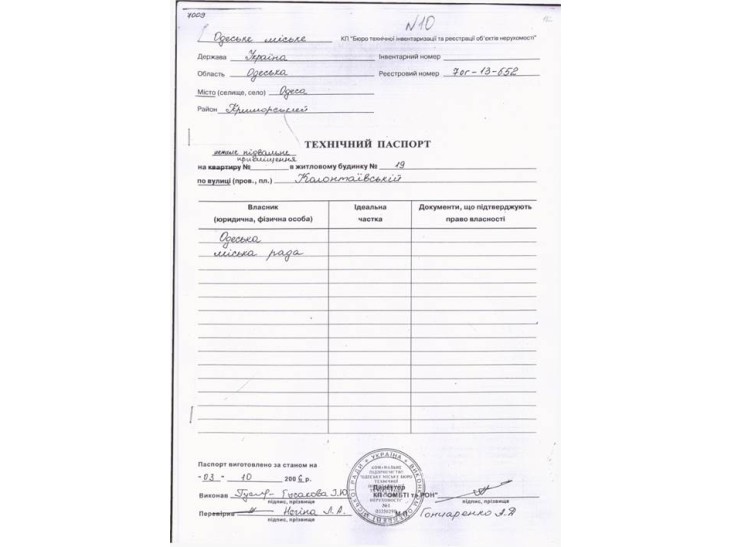 7009
N10
Одеське міське КП "Бюро технічної інвентаризації та реєстрації об'єктів нерухомості"
Держава Україна Інвентарний номер
Область Одеська Реєстровий номер 7ог-13-652
Місто (селище, село) Одеса
Район Приморський
ТЕХНІЧНИЙ ПАСПОРТ
нежиле підвальне
приміщення
на квартиру № в житловому будинку № 19
по вулиці (пров., пл.) Колонтаївській
Власник (юридична, фізична особа) Ідеальна частка Документи, що підтверджують право власності
Одеська
міська рада
Паспорт виготовлено за станом на
"03" 10 2006 р.
Виконав Гусакова І.Ю.
підпис, прізвище
Директор
КП "ОМБТІ та РОН"
підпис, прізвище
Перевірив Ногіна Л.А.
підпис, прізвище
М.П. Гончаренко А.Д
УКРАЇНА